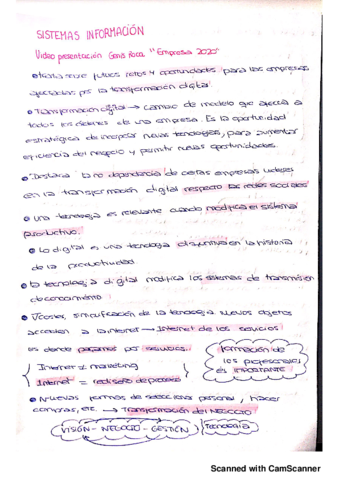 SISTEMAS INFORMACIÓN
Video presentación Genís Roca "Empresa 2020"
futuros retos y oportunidades para las empresas
ajectadas por la transformación digital.
Transformación digital → cambio de modelo que afecta a
todos los de una empresa. Es la oportunidad
estratégica de incorporar nuevas tecnologías, para aumentar
eficiencia del negocio y permitir nuevas oportunidades.
Destaria la no dependencia de ciertas empresas líderes
en la transformación digital respecto las redes sociales
Una tecnología es relevante cuando modifica el sistema
productivo.
Lo digital es una tecnología disruptiva en la historia
de la productividad
la tecnología digital modifica los sistemas de transmisión
de conocimiento
↓Costes, simplificación de la tecnología nuevos objetos
acceden a la internet → Internet de los servicios
es donde pagamos por servicios.
Internet ≠ marketing
Internet = rediseño de procesos
formación de
los profesionales
es IMPORTANTE
Nuevas formas de seleccionar personal, hacer
compras, etc. → Transformación del NEGOCIO
VISIÓN - NEGOCIO - GESTIÓN Tecnología
Scanned with CamScanner